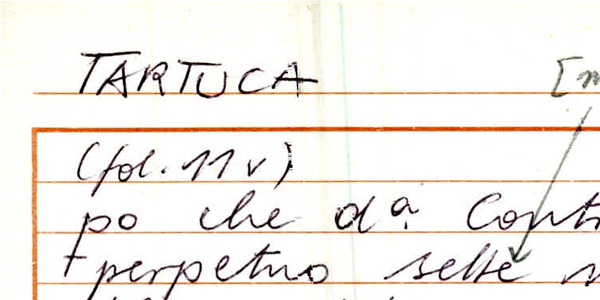 TARTUCA
(fol. 11 v)
po che d.ª Cont
perpetuo sette